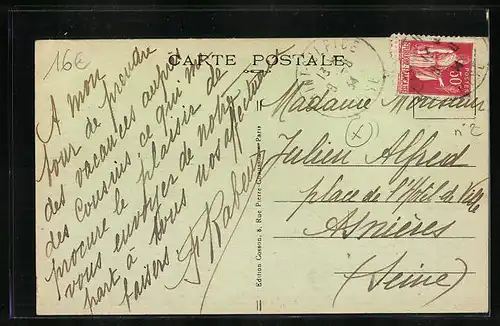 16€
CARTE POSTALE
A mon
tour de prendre
des vacances auprès
des Cousins ce qui me
procure le plaisir de
vous envoyer de notre
part à tous nos affectueux
baisers
Edition Cosson, 8, Rue Pierre- Paris
Madame
Julien Alfred
place de l'Hôtel de Ville
Asnières
(Seine)
50c
POSTES
n°2